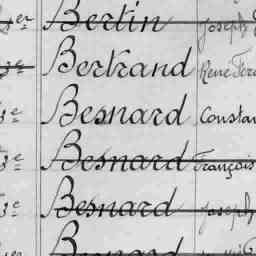 1er Bertin Joseph
3e Bertrand René Fer
3e Besnard Constan
3e Besnard François
3e Besnard Joseph